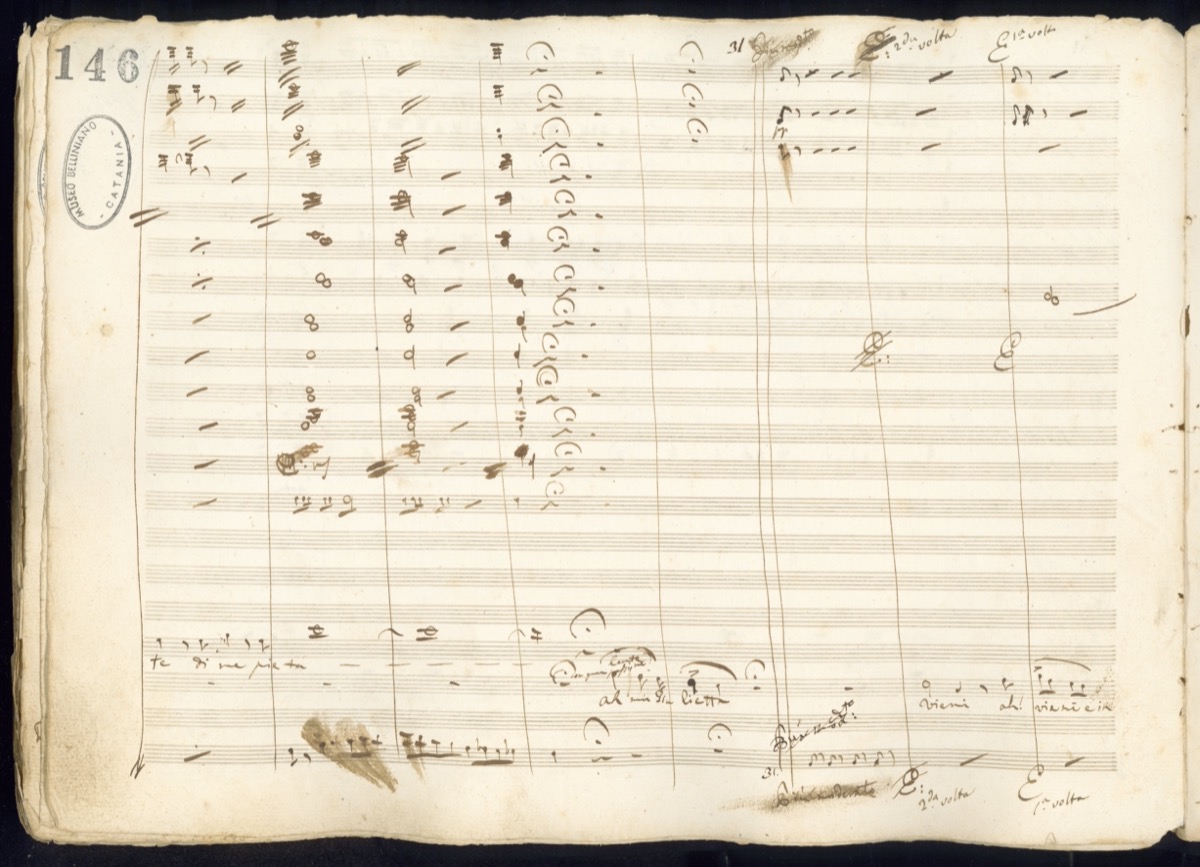 146
MUSEO BELLINIANO
- CATANIA -
31
2da volta
1a volta
te di me pieta
ah mia Diletta
vieni ah! vieni e in
31.
Piu moderato
2da volta
1a volta